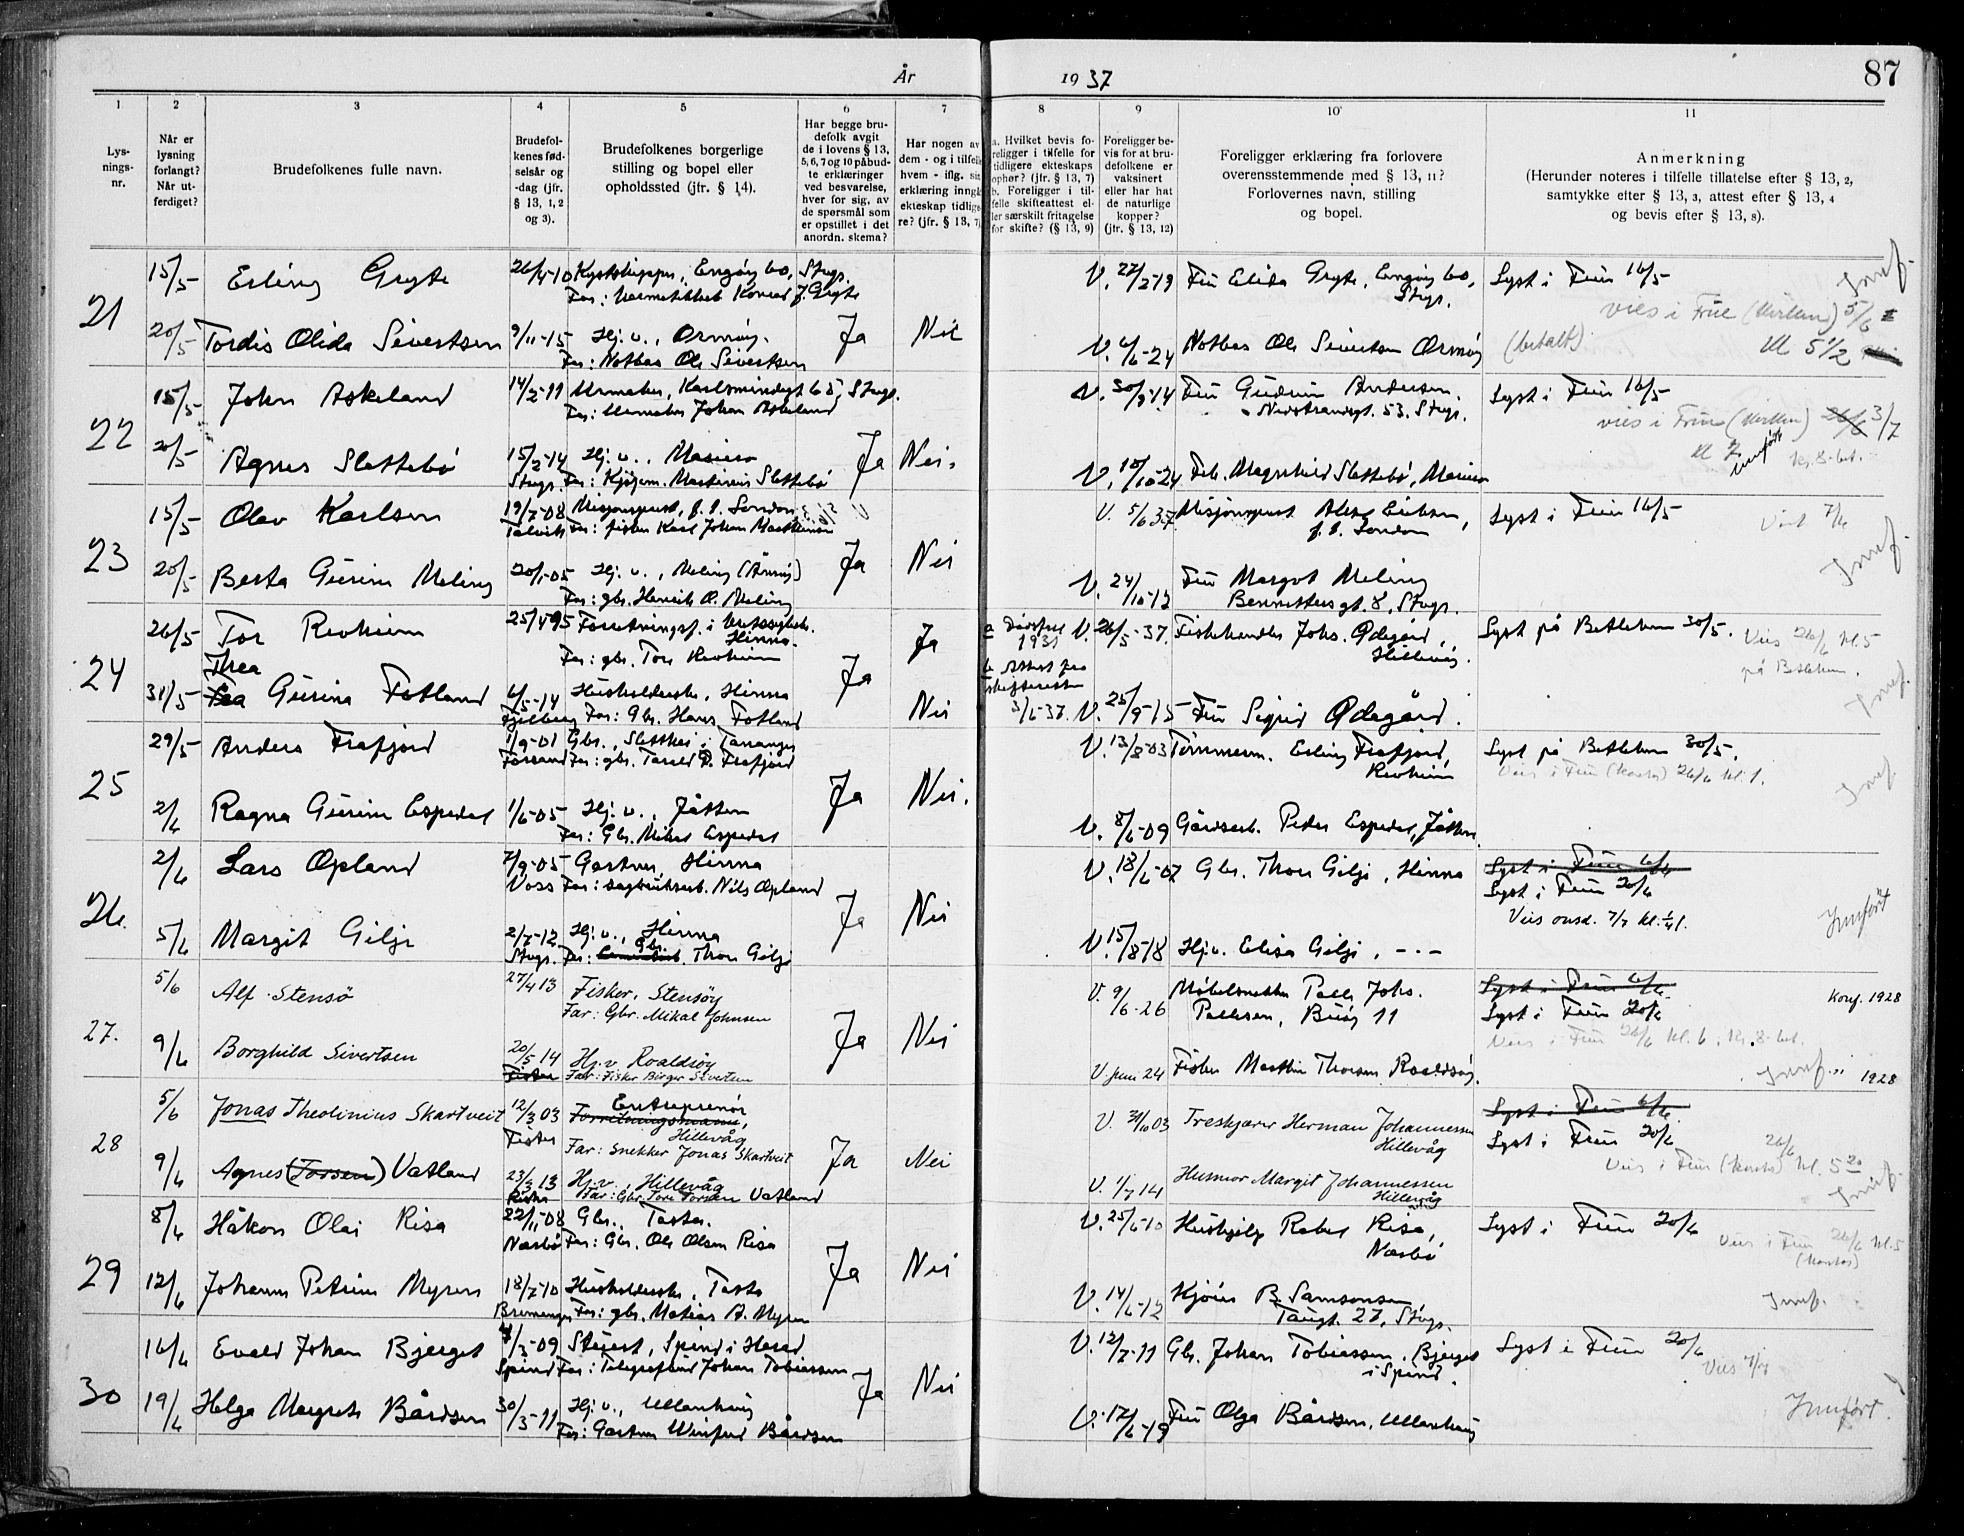 År 1937
87
1 2 3 4 5 6 7 8 9 10 11
Lys-
nings-
nr.
Når er
lysning
forlangt?
Når ut-
ferdiget?
Brudefolkenes fulle navn.
Brudefol-
kenes fød-
selsår og
-dag (jfr.
§ 13, 1, 2
og 3).
Brudefolkenes borgerlige
stilling og bopel eller
opholdssted (jfr. § 14).
Har begge bru-
defolk avgit
de i lovens § 13,
5, 6, 7 og 10 påbud-
te erklæringer
ved besvarelse,
hver for sig, av
de spørsmål som
er opstillet i det
anordn. skema?
Har nogen av
dem - og i tilfelle
hvem - iflg. sin
erklæring inngå
ekteskap tidlige
re? (jfr. § 13, 7)
a. Hvilket bevis fo-
religger i tilfelle for
tidligere ekteskaps
ophør? (jfr. § 13, 7)
b. Foreligger i til-
felle skifteattest el-
ler særskilt fritagelse
for skifte? (§ 13, 9)
Foreligger be-
vis for at bru-
defolkene er
vaksinert
eller har hat
de naturlige
kopper?
(jfr. § 13, 12)
Foreligger erklæring fra forlovere
overensstemmende med § 13, 11?
Forlovernes navn, stilling
og bopel.
Anmerkning
(Herunder noteres i tilfelle tillatelse efter § 13, 2,
samtykke efter § 13, 3, attest efter § 13, 4
og bevis efter § 13, 8).
21
15/5 Erling Gryte 26/4-10 Kystskipper, Engöy 60, Stvgr. V. 22/2-19 Fru Elida Gryte, Engöy 60, Lyst i Frue 16/5
Far: Konrad J. Gryte Stvgr.
vies i Frue 5/6
20/5 Tordis Olida Sivertsen 9/11-15 Hj. v., Ormöy. Ja Nei V. 4/6-24 Notbas Ole Sivertsen Ormöy (betalt) kl 5 1/2
Far: Notbas Ole Sivertsen
22
15/5 John Askeland 14/2-11 Urmaker, Karlsminnegt 65, Stvgr. V. 30/9-14 Fru Gudrun Andersen, Lyst i Frue 16/5
Far: Urmaker Johan Askeland Nedstrandsgt. 53. Stvgr.
vies i Frue 26/6 3/7
20/5 Agnes Slettebö 15/2-14 Hj. v., Mariero Ja Nei. V. 10/10-24 Frk. Magnhild Slettebö, Mariero kr. 8- bet.
Stvgr. Far: Kjöpm. Martinius Slettebö
23
15/5 Olav Karlsen 19/7-08 Misjonsprest, f. t. London V. 5/6 37 Misjonsprest Alex Eriksen, Lyst i Frue 16/5 Viet 7/6
Talvik Far: fisker Karl Johan f. t. London
20/5 Berta Gurine Meling 20/1-05 Hj. v., Meling (Åmöy) Ja Nei V. 24/10-12 Fru Margot Meling
Far: gbr. Henrik O. Meling Bennettersgt. 8, Stvgr.
24
26/5 Tor Revheim 25/4 95 Forretningsf. i Hinna. Ja V. 26/5-37. Fiskehandler Johs. Ödegård, Lyst på Betlehem 30/5. Vies 26/6 kl. 5
Far: gbr. Tore Revheim 1931 Hillevåg. på Betlehem.
Thea
31/5 Gurina Fotland 6/5-14 Husholderske, Hinna Ja Nei 3/6-37. V. 25/9-15 Fru Sigrid Ödegård.
Far: Gbr. Hans Fotland
25
29/5 Anders Frafjord 1/9-01 Gbr., V. 13/8-03 Tömmerm. Erling Frafjord, Lyst på Betlehem 30/5.
Forsand Far: gbr. Tarald P. Frafjord Revheim Vies i Frue 26/6 kl. 1.
2/6 Ragna Gurine Espedal 1/6-05 Hj. v., Jåtten Ja Nei. V. 8/6-09 Gårdsarb. Peder Espedal, Jåtten
Far: Gbr. Mikal Espedal
26.
2/6 Lars Opland 7/9-05 Gartner, Hinna V. 18/6-07 Gbr. Thore Gilje, Hinna Lyst i Frue 6/6
Voss Far: sagbruksarb. Nils Opland Lyst i Frue 20/6
Vies onsd. 7/7 kl. 1/4 1.
5/6 Margit Gilje 2/7-12 Hj. v., Hinna Ja Nei V. 15/8-18 Hj. v. Elisa Gilje, -.-
Stvgr. Far: Gbr. Thore Gilje Innført
27.
5/6 Alf Stensö 27/4 13 Fisker, Stensöy V. 9/6-26 Möbelsnekker Palle Johs. Lyst i Frue 6/6. Konf. 1928
Far: Gbr. Mikal Johnsen Pallesen, Buöy 11 Lyst i Frue 20/6
Vies i Frue 26/6 kl. 6, kr. 8- bet.
9/6 Borghild Sivertsen 20/5 14 Hj. v Roaldsöy Ja Nei V. juni 24 Fisker Martin Thorsen Roaldsöy. Innf. " 1928
Far: Fisker Birger Sivertsen
28
5/6 Jonas Theolinius Skartveit 12/3 03 Entreprenör V. 31/10 03 Treskjærer Herman Johannessen Lyst i Frue 6/6
Fister Forretningsmann, Hillevåg Hillevåg Lyst i Frue 20/6
Far: Snekker Jonas Skartveit 26/6
9/6 Agnes (Torsen) Vatland 23/3 13 Hj. v., Hillevåg Ja Nei V. 1/7 14 Husmor Margit Johannessen Vies i Frue kl. 5 20
Far: Gbr. Tore Torsen Vatland Hillevåg Innf.
29
8/6 Håkon Olai Risa 22/11-08 Gbr., Tasta. V. 25/6-10 Hushjelp Rakel Risa, Lyst i Frue 20/6
Nærbö Far: Gbr. Ole Olsen Risa Nærbö Vies i Frue 26/6 kl. 5
12/6 Johanne Petrine Myren 18/7-10 Husholderske, Tasta Ja Nei V. 14/6-12 Kjöien B. Samsonsen Innf.
Bremanger Far: gbr. Matias A. Myren Taugt. 27, Stvgr.
30
16/6 Evald Johan Bjerget 4/3-09 Stuert, Spind i Herad V. 12/7-11 Gbr. Johan Tobiassen, Bjerget Lyst i Frue 20/6
Spind Far: Johan Tobiassen i Spind. Vies
19/6 Helga Margrete Bårdsen 30/3-11 Hj. v., Ullenhaug Ja Nei V. 17/6-19 Fru Olga Bårdsen, Ullenhaug Innført
Far: Gartner Bårdsen